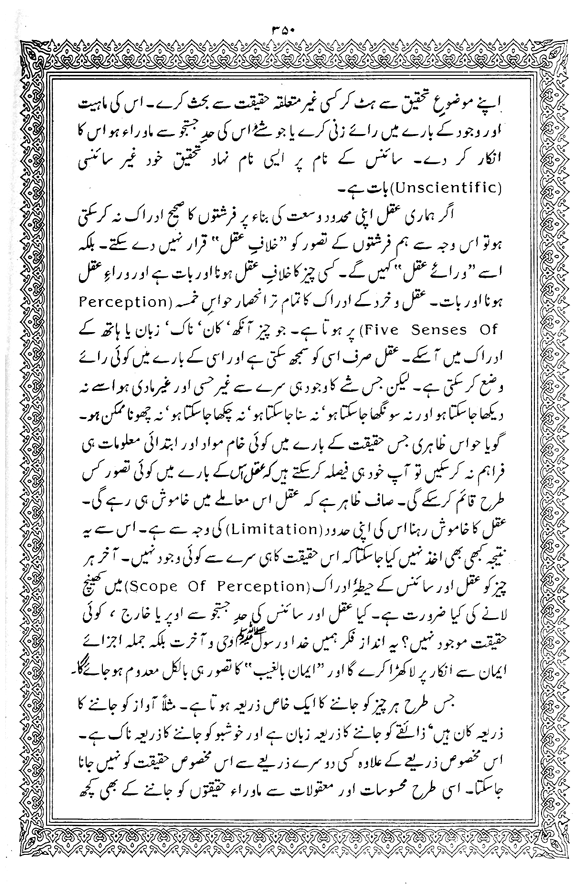 ۳۵۰
اپنے موضوعِ تحقیق سے ہٹ کر کسی غیر متعلقہ حقیقت سے بحث کرے۔ اس کی ماہیت
اور وجود کے بارے میں رائے زنی کرے یا جو شئے اس کی حدِ جستجو سے ماوراء ہو اس کا
انکار کر دے۔ سائنس کے نام پر ایسی نام نہاد تحقیق خود غیر سائنسی
(Unscientific) بات ہے۔
اگر ہماری عقل اپنی محدود وسعت کی بناء پر فرشتوں کا صحیح ادراک نہ کرسکتی
ہو تو اس وجہ سے ہم فرشتوں کے تصور کو ”خلافِ عقل“ قرار نہیں دے سکتے۔ بلکہ
اسے ”ورائے عقل“ کہیں گے۔ کسی چیز کا خلافِ عقل ہونا اور بات ہے اور وراءِ عقل
ہونا اور بات۔ عقل و خرد کے ادراک کا تمام تر انحصار حواسِ خمسہ (Perception
Five Senses Of) پر ہوتا ہے۔ جو چیز آنکھ‘ کان‘ ناک‘ زبان یا ہاتھ کے
ادراک میں آسکے۔ عقل صرف اسی کو سمجھ سکتی ہے اور اسی کے بارے میں کوئی رائے
وضع کر سکتی ہے۔ لیکن جس شے کا وجود ہی سرے سے غیر حسی اور غیر مادی ہو اسے نہ
دیکھا جاسکتا ہو اور نہ سونگھا جاسکتا ہو‘ نہ سنا جاسکتا ہو‘ نہ چکھا جاسکتا ہو‘ نہ چھونا ممکن ہو۔
گویا حواس ظاہری جس حقیقت کے بارے میں کوئی خام مواد اور ابتدائی معلومات ہی
فراہم نہ کرسکیں تو آپ خود ہی فیصلہ کرسکتے ہیں کہ عقل اس کے بارے میں کوئی تصور کس
طرح قائم کرسکے گی۔ صاف ظاہر ہے کہ عقل اس معاملے میں خاموش ہی رہے گی۔
عقل کا خاموش رہنا اس کی اپنی حدود (Limitation) کی وجہ سے ہے۔ اس سے یہ
نتیجہ کبھی بھی اخذ نہیں کیا جاسکتا کہ اس حقیقت کا ہی سرے سے کوئی وجود نہیں۔ آخر ہر
چیز کو عقل اور سائنس کے حیطۂ ادراک (Scope Of Perception) میں کھینچ
لانے کی کیا ضرورت ہے۔ کیا عقل اور سائنس کی حدِ جستجو سے اوپر یا خارج ، کوئی
حقیقت موجود نہیں؟ یہ اندازِ فکر ہمیں خدا و رسول ﷺ وحی و آخرت بلکہ جملہ اجزائے
ایمان سے انکار پر لا کھڑا کرے گا اور ”ایمان بالغیب“ کا تصور ہی بالکل معدوم ہو جائے گا۔
جس طرح ہر چیز کو جاننے کا ایک خاص ذریعہ ہوتا ہے۔ مثلاً آواز کو جاننے کا
ذریعہ کان ہیں‘ ذائقے کو جاننے کا ذریعہ زبان ہے اور خوشبو کو جاننے کا ذریعہ ناک ہے۔
اس مخصوص ذریعے کے علاوہ کسی دوسرے ذریعے سے اس مخصوص حقیقت کو نہیں جانا
جاسکتا۔ اسی طرح محسوسات اور معقولات سے ماوراء حقیقتوں کو جاننے کے بھی کچھ